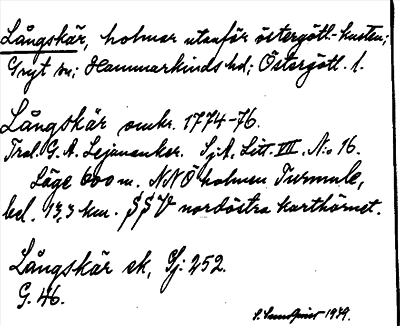 Långskär, holmar utanför östergötl.-kusten;
Gryt sn; Hammarkinds hd; Östergötl. l.
Långskär omkr. 1774-76.
Trol. G. A. Lejonanker. SjA. Litt. VII. No 16.
Läge 600 m. NNÖ holmen Turmule,
bel. 13,3 km. SSV nordöstra karthörnet.
Långskär ek, Sj: 252.
G. 46.
S. Sundqvist 1949.